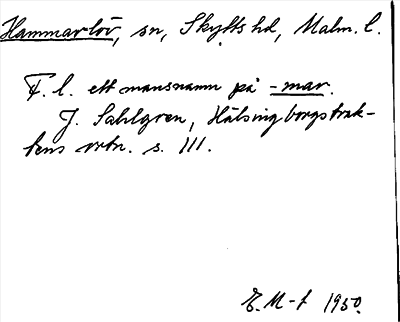 Hammarlöv, sn, Skytts hd, Malm. l.
F. l. ett mansnamn på -mar.
J. Sahlgren, Hälsingborgstrak-
tens ortn. s. 111.
E. M-t 1950.